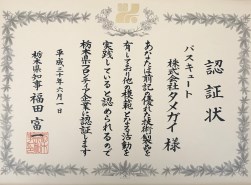 認証状
バスキュート
株式会社タメガイ 様
あなたは前記の優れた技術製品を
有しており他の模範となる活動を
実践していると認められるので
栃木県フロンティア企業に認証します
平成三十年六月一日
栃木県知事 福田富一